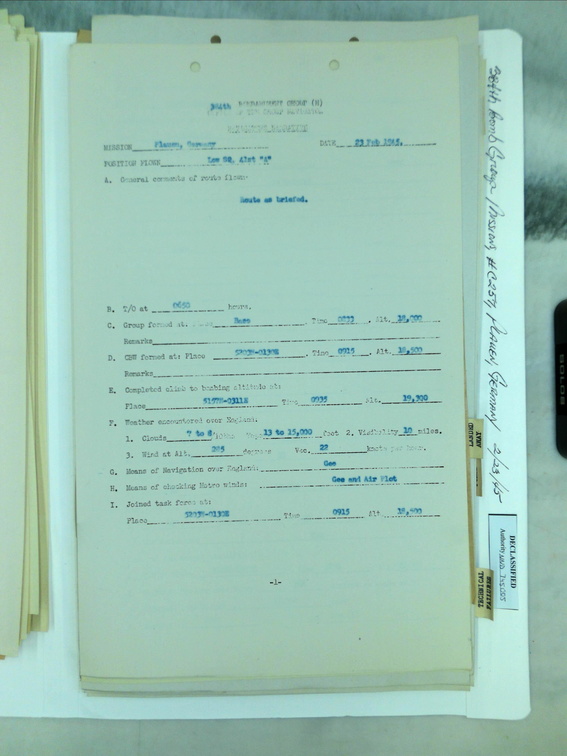 384th BOMBARDMENT GROUP (H)
OFFICE OF THE GROUP NAVIGATOR
MISSION Plauen, Germany DATE 23 Feb 1945.
POSITION FLOWN Low SQ, 41st "A"
A. General comments of route flown-
Route as briefed.
B. T/O at hours.
C. Group formed at: Base Time 0833 . Alt. 18,000
Remarks
D. CBW formed at: Place 5207N-0130E , Time 0915 Alt. 18,500
Remarks
E. Completed climb to bombing altitude at:
Place Time 0935 Alt. 19,300
F. Weather encountered over England:
1. Clouds 7 to 8 /10ths 13 to 15,000 feet 2. Visibility 10 miles.
3. Wind at Alt. degrees Vec. 22 knots per hour.
G. Means of Navigation over England: Gee
H. Means of checking Metro winds: Gee and Air Plot
I. Joined task force at:
Place 5207N-0130E Time 0915 Alt 18,500
-1-
384th Bomb Group / Mission #C257, Plauen, Germany 2/23/45
LANDED
AWAY
TECHNICAL
FAILURES
DECLASSIFIED
Authority NND 745005